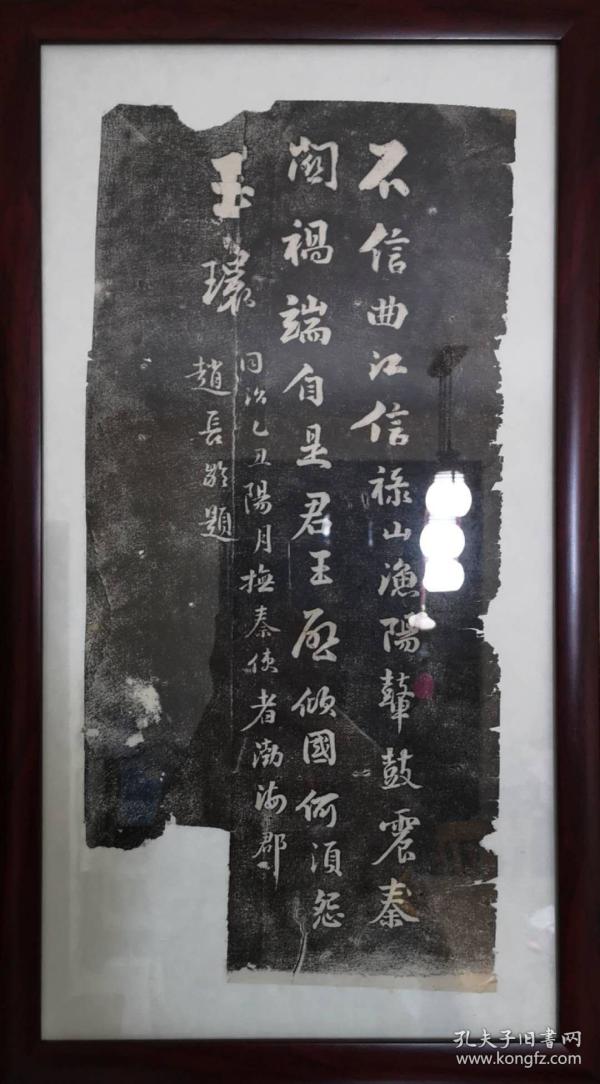 不信曲江信祿山漁陽鼙鼓震秦
關禍端自是君王啟傾國何須怨
玉環
同治乙丑陽月撫秦使者渤海郡
趙長齡題
孔夫子旧书网
www.kongfz.com